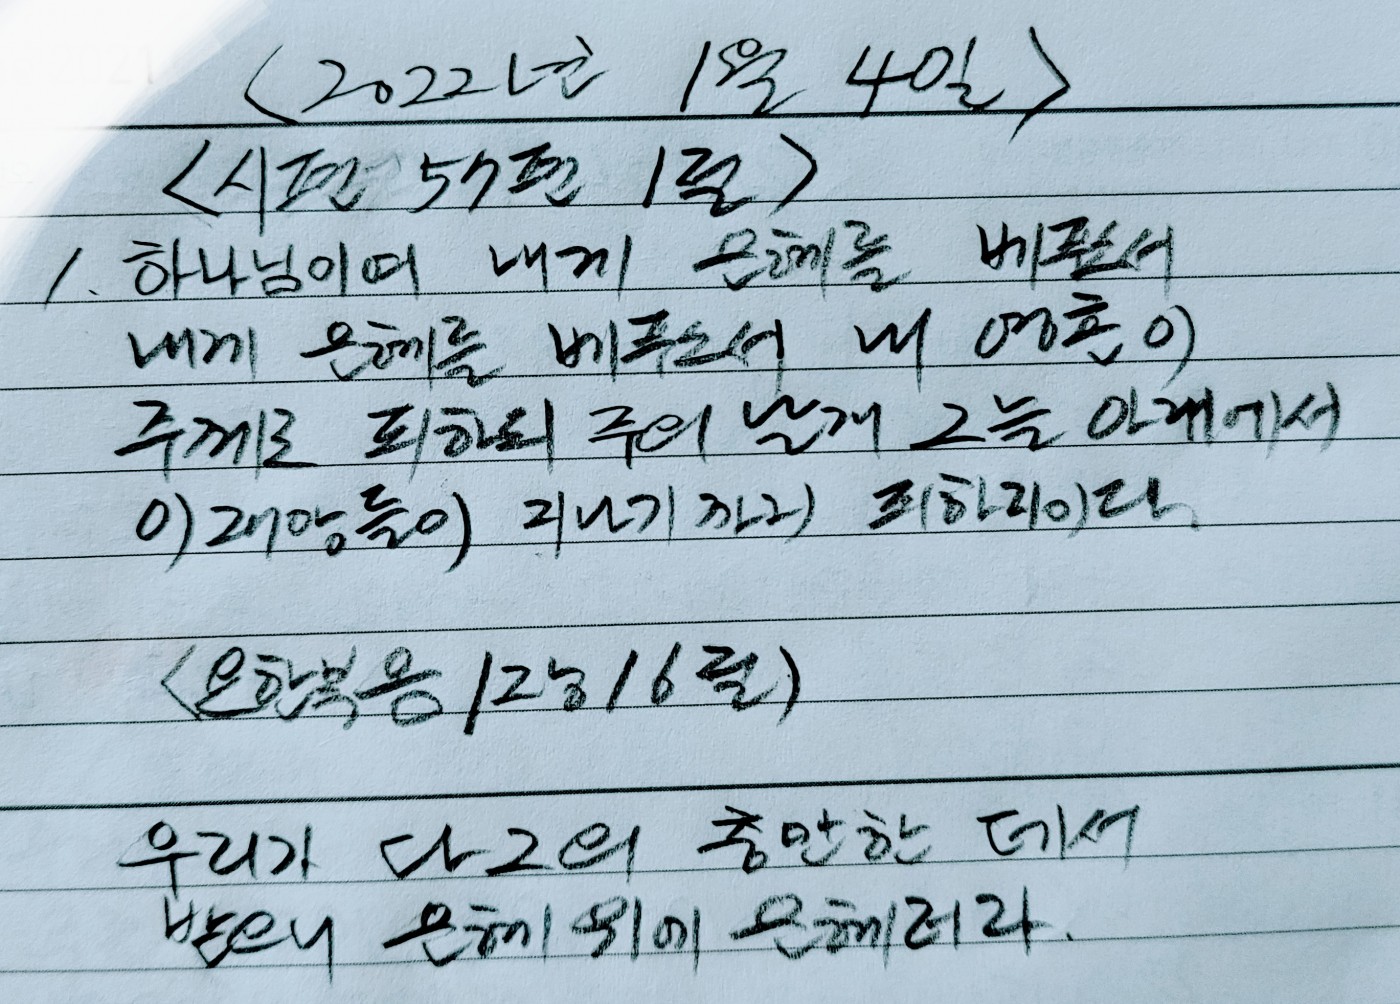 <2022년 1월 4일>
<시편 57편 1절>
1. 하나님이여 내게 은혜를 베푸소서
내게 은혜를 베푸소서 내 영혼이
주께로 피하되 주의 날개 그늘 아래에서
이 재앙들이 지나기까지 피하리이다.
<요한복음 1장 16절>
우리가 다 그의 충만한 데서
받으니 은혜 위에 은혜러라.